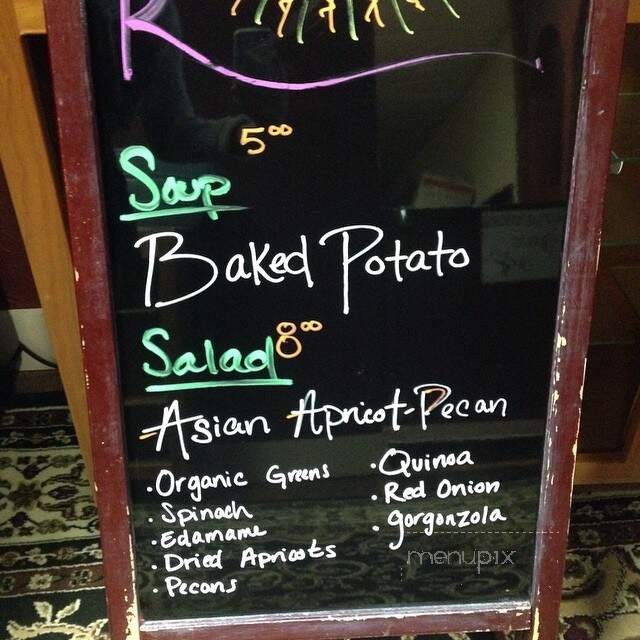 5⁰⁰
Soup
Baked Potato
Salad 8⁰⁰
Asian Apricot-Pecan
· Organic Greens
· Spinach
· Edamame
· Dried Apricots
· Pecans
· Quinoa
· Red Onion
· gorgonzola
menupix